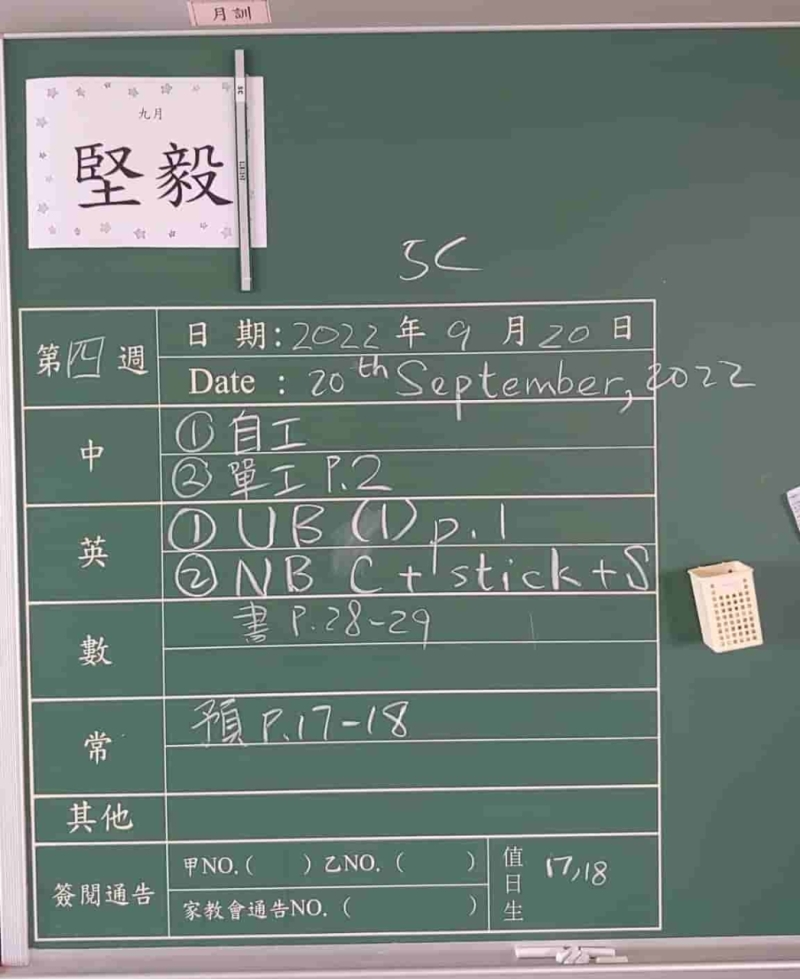 月訓
九月
堅毅
5C
第四週
日期:2022年9月20日
Date : 20th September, 2022
中
① 自工
② 單工 P.2
英
① UB (1) p.1
② NB C + stick + S
數
書 P.28-29
常
預 P.17-18
其他
簽閱通告
甲NO.( ) 乙NO. ( )
家教會通告NO. ( )
值日生 17,18